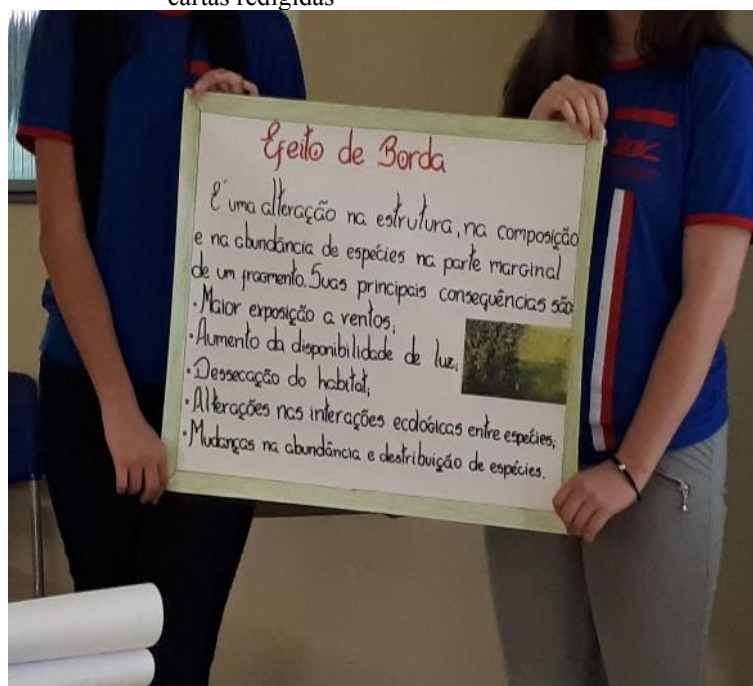 cartas redigidas
Efeito de Borda
É uma alteração na estrutura, na composição
e na abundância de espécies na parte marginal
de um fragmento. Suas principais consequências são:
• Maior exposição a ventos;
• Aumento da disponibilidade de luz;
• Dessecação do habitat;
• Alterações nas interações ecológicas entre espécies;
• Mudanças na abundância e destribuição de espécies.